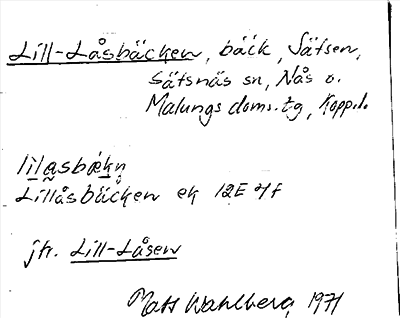 Lill-Låsbäcken, bäck, Sätsen,
Sätsnäs sn, Nås o.
Malungs doms.tg, Kopp.l.
Lillåsbäcken ek 12E
jfr. Lill-Låsen
Mats Wahlberg 1971